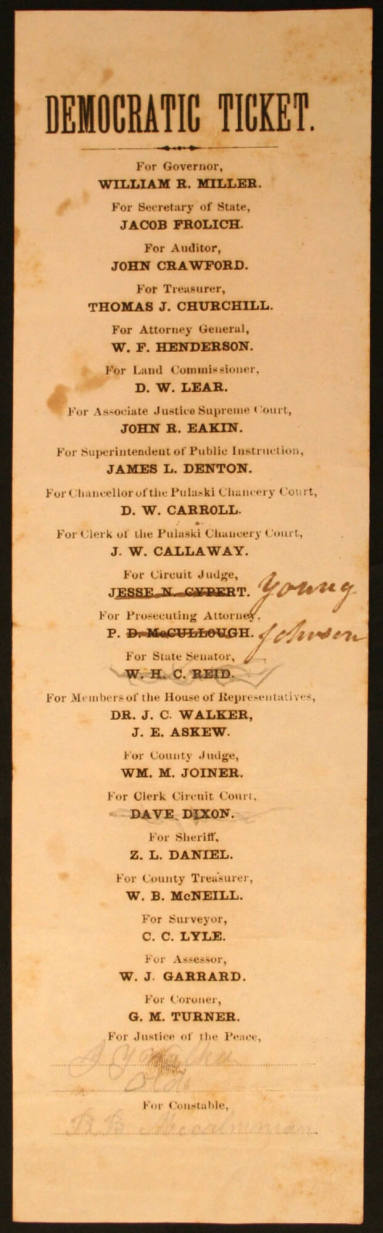 DEMOCRATIC TICKET.
For Governor,
WILLIAM R. MILLER.
For Secretary of State,
JACOB FROLICH.
For Auditor,
JOHN CRAWFORD.
For Treasurer,
THOMAS J. CHURCHILL.
For Attorney General,
W. F. HENDERSON.
For Land Commissioner,
D. W. LEAR.
For Associate Justice Supreme Court,
JOHN R. EAKIN.
For Superintendent of Public Instruction,
JAMES L. DENTON.
For Chancellor of the Pulaski Chancery Court,
D. W. CARROLL.
For Clerk of the Pulaski Chancery Court,
J. W. CALLAWAY.
For Circuit Judge,
JESSE N. CYPERT. Young
For Prosecuting Attorney,
P. D. McCULLOUGH. Johnson
For State Senator,
W. H. C. REID.
For Members of the House of Representatives,
DR. J. C. WALKER,
J. E. ASKEW.
For County Judge,
WM. M. JOINER.
For Clerk Circuit Court,
DAVE DIXON.
For Sheriff,
Z. L. DANIEL.
For County Treasurer,
W. B. McNEILL.
For Surveyor,
C. C. LYLE.
For Assessor,
W. J. GARRARD.
For Coroner,
G. M. TURNER.
For Justice of the Peace,
Walker
For Constable,
B B